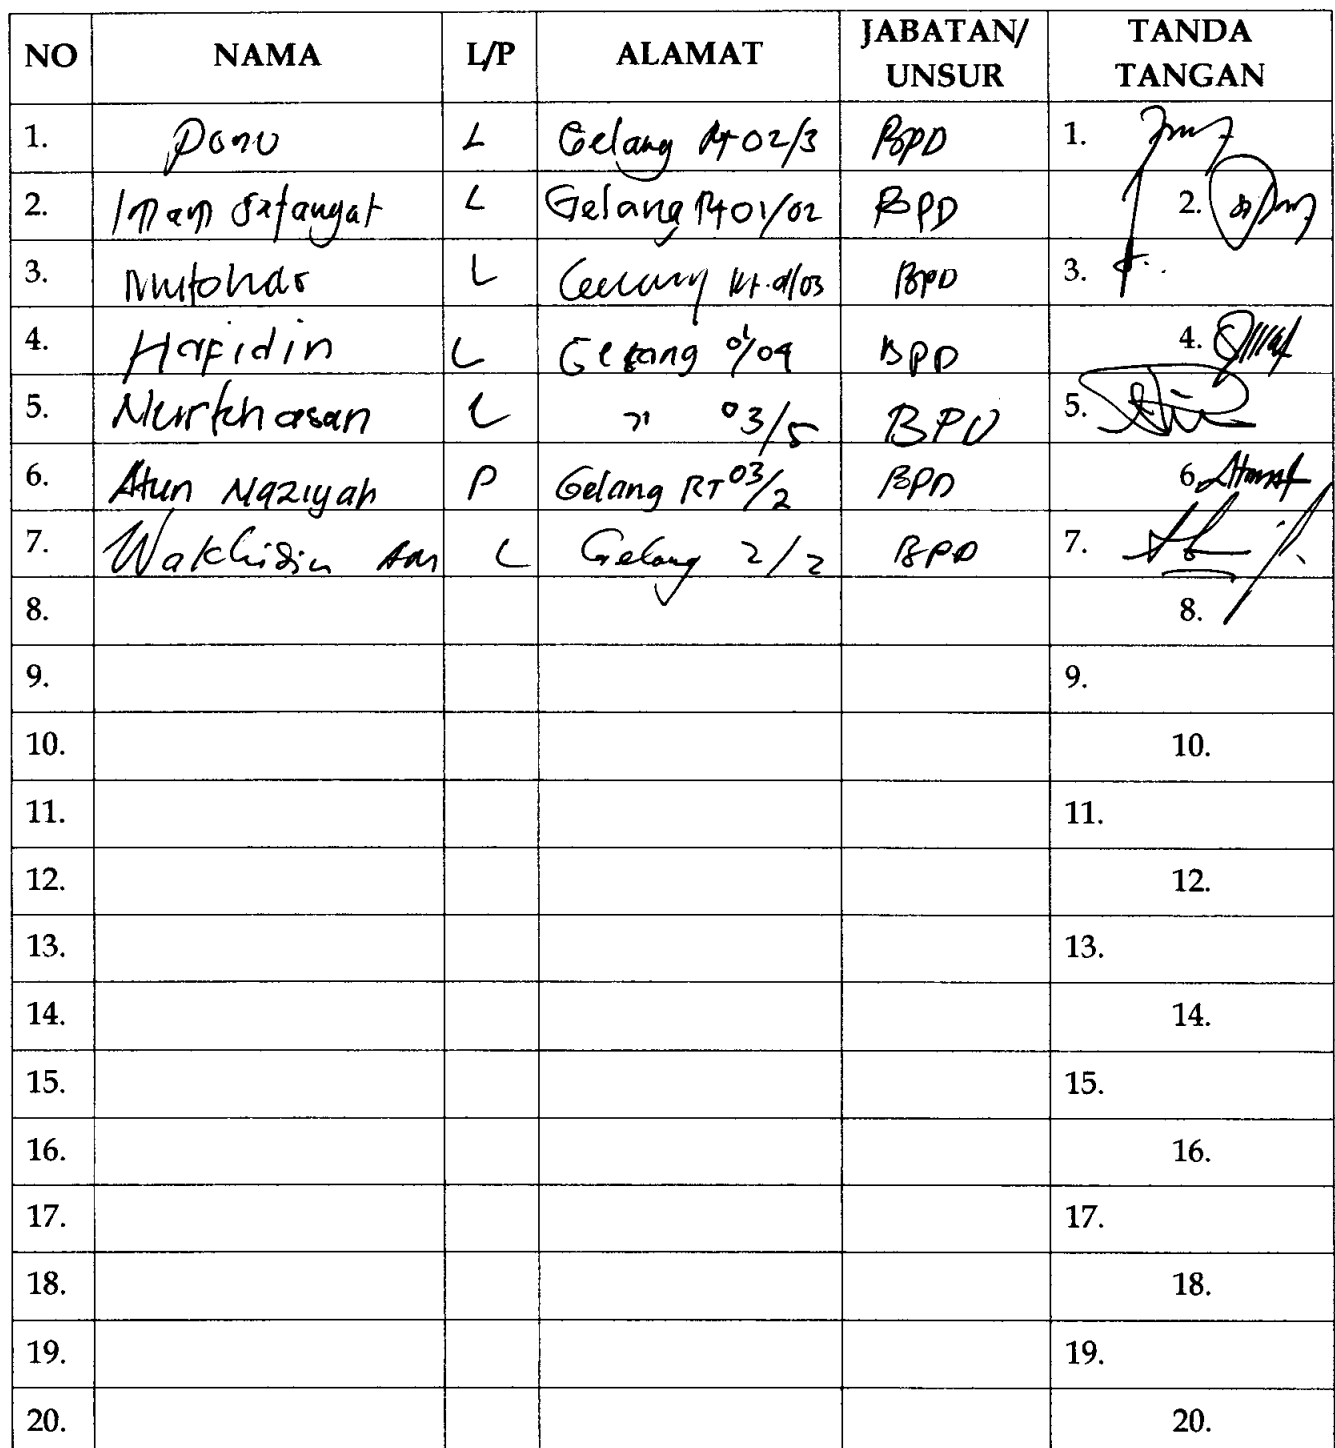 NO NAMA L/P ALAMAT JABATAN/ UNSUR TANDA TANGAN
1. Donu L Gelang Rt 02/3 BPD 1.
2. Imam L Gelang Rt 01/02 BPD 2.
3. Mutohar L Gelang Rt. 01/03 BPD 3.
4. Hafidin L Gelang 01/04 BPD 4.
5. Nurkhasan L " 03/5 BPD 5.
6. Atun Naziyah P Gelang RT 03/2 BPD 6.
7. Wakhidin AM L Gelang 2/2 BPD 7.
8. 8.
9. 9.
10. 10.
11. 11.
12. 12.
13. 13.
14. 14.
15. 15.
16. 16.
17. 17.
18. 18.
19. 19.
20. 20.